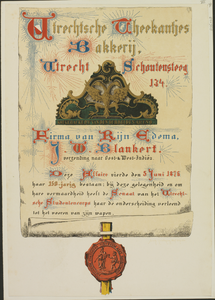 Utrechtsche Theekantjes
Bakkerij,
Utrecht Schoutensteeg
124.
Firma van Rijn Edema,
J. G. Blankert.
verzending naar Oost & West-Indiën
Deze Atelier vierde den 5 Juni 1876
haar 200-jarig bestaan: bij deze gelegenheid en om
hare vermaardheid heeft de Senaat van het Utrecht-
sche Studentencorps haar de onderscheiding verleend
tot het voeren van zijn wapen.